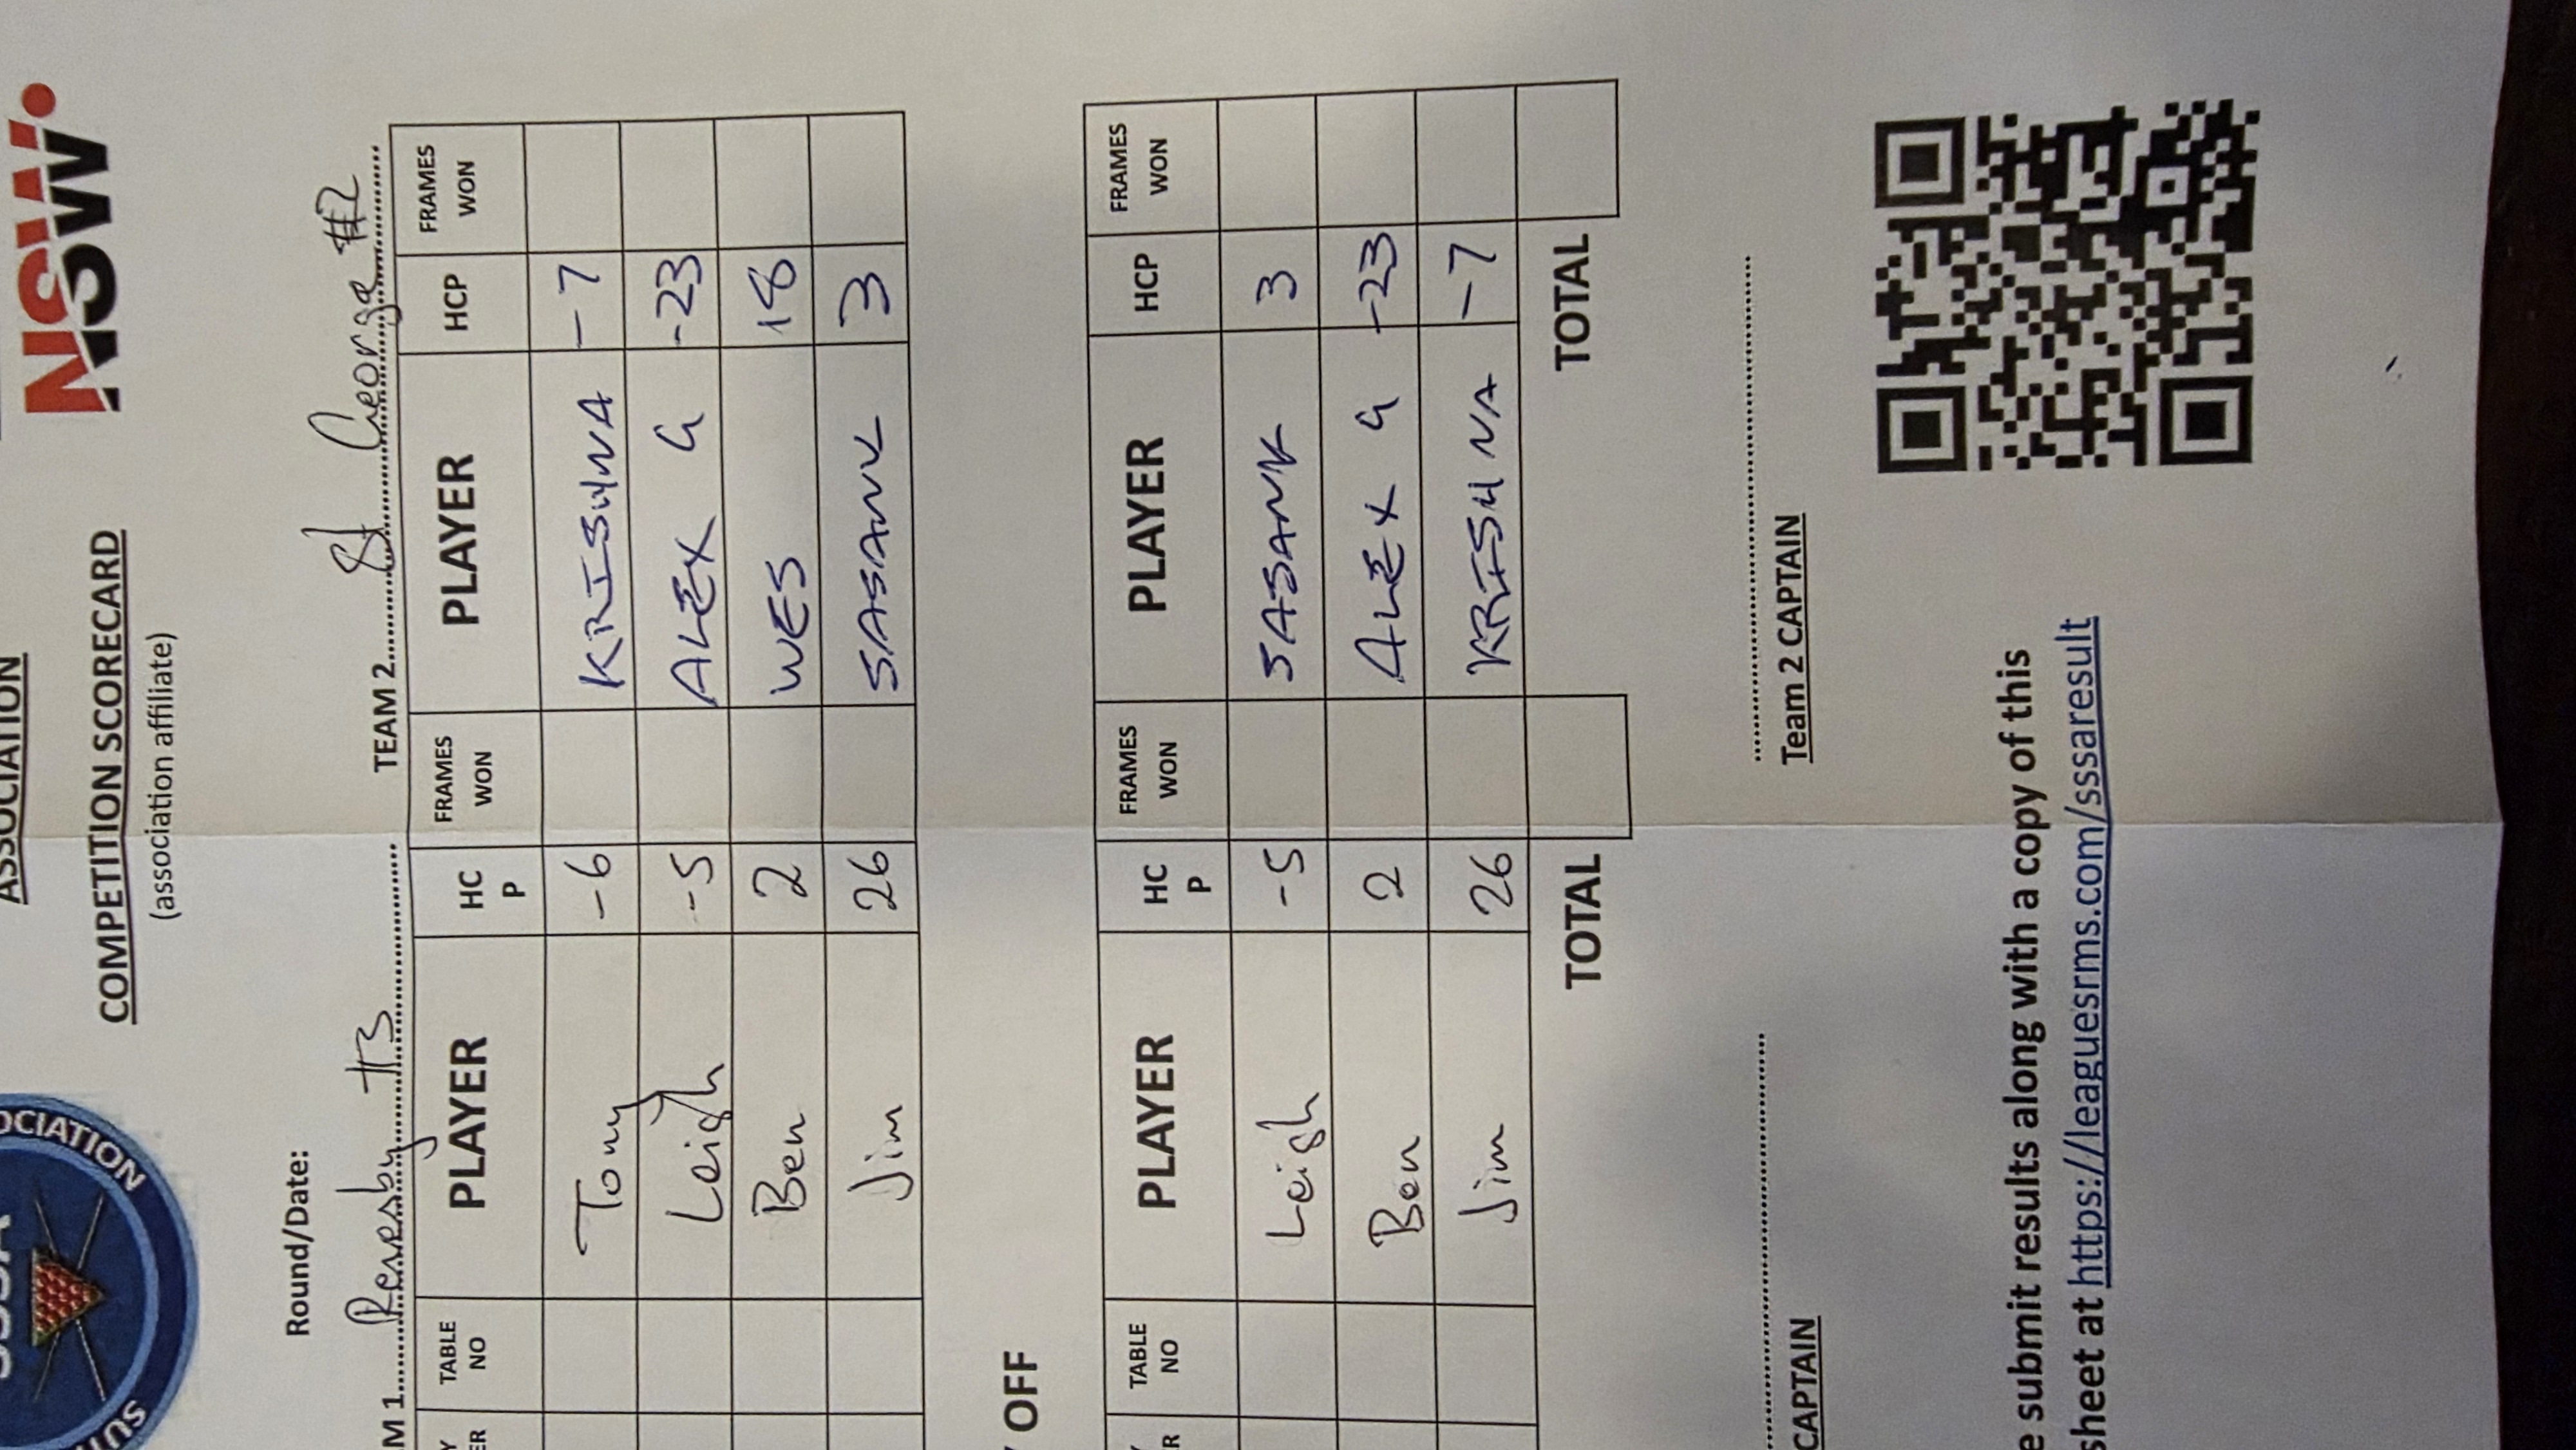 ASSOCIATION
NSW
COMPETITION SCORECARD
(association affiliate)
Round/Date:
M 1 Revesby #3 TEAM 2 St George #2
ER TABLE NO PLAYER HC P FRAMES WON PLAYER HCP FRAMES WON
Tony -6 KRISHNA -7
Leigh -5 ALEX G -23
Ben 2 WES 18
Jim 26 SASANK 3
OFF
R TABLE NO PLAYER HC P FRAMES WON PLAYER HCP FRAMES WON
Leigh -5 SASANK 3
Ben 2 ALEX G -23
Jim 26 KRISHNA -7
TOTAL TOTAL
CAPTAIN Team 2 CAPTAIN
e submit results along with a copy of this
sheet at https://leaguesrms.com/sssaresult